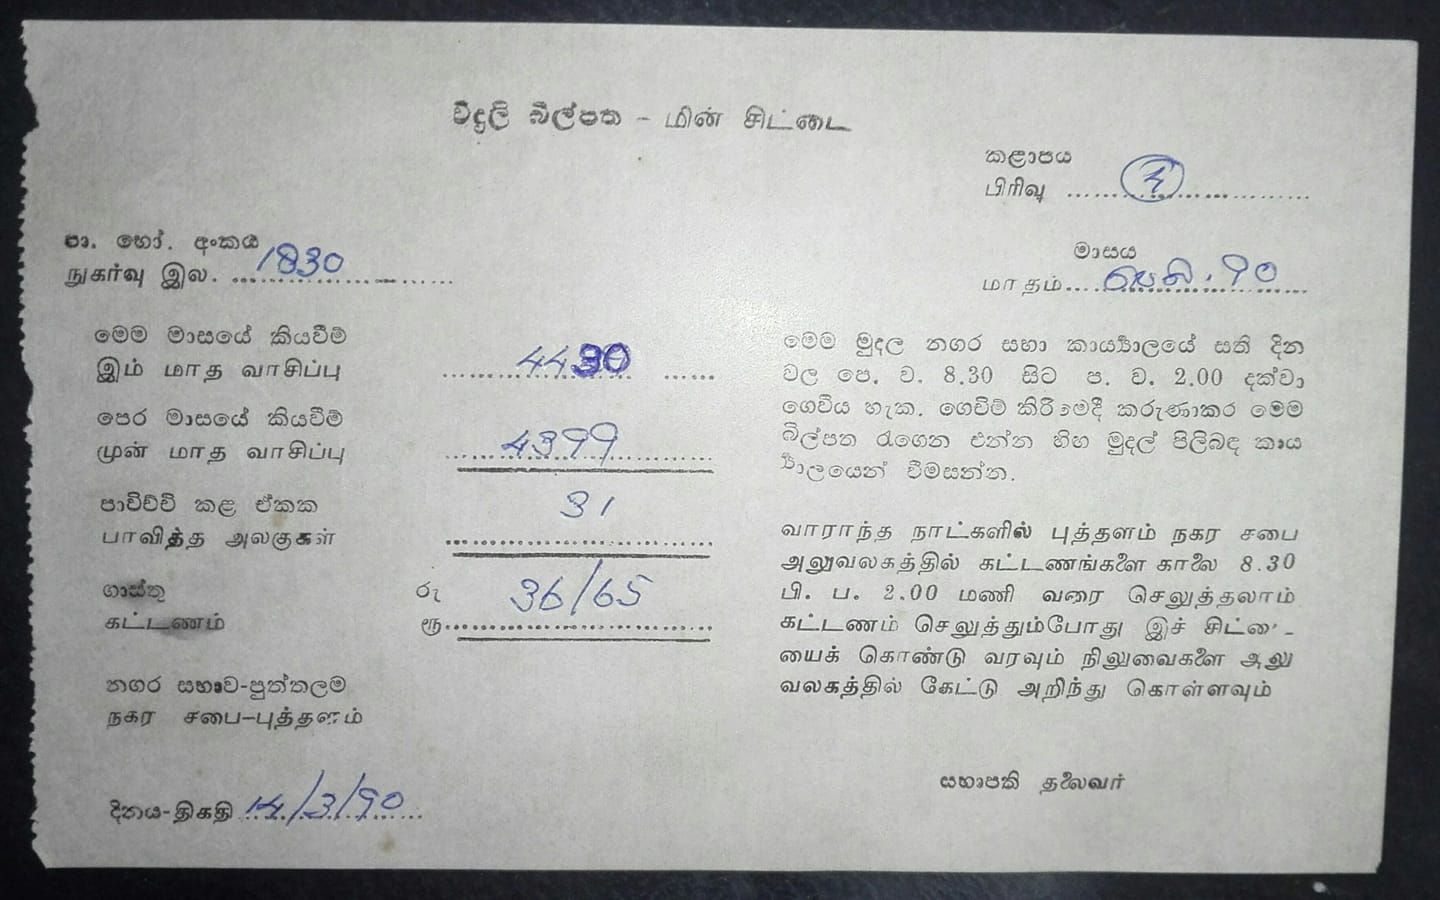 විදුලි බිල්පත - மின் சிட்டை
කළාපය
பிரிவு 4
පා. හෝ. අංකය
நுகர்வு இல. 1830
මාසය
மாதம் පෙබ. 90
මෙම මාසයේ කියවීම්
இம் மாத வாசிப்பு 4430
පෙර මාසයේ කියවීම්
முன் மாத வாசிப்பு 4399
පාවිච්චි කළ ඒකක
பாவித்த அலகுகள் 31
ගාස්තු රු
கட்டணம் ரூ 36/65
නගර සභාව-පුත්තලම
நகர சபை-புத்தளம்
දිනය-திகதி 14/3/90
මෙම මුදල නගර සභා කාර්‍ය්‍යාලයේ සති දින
වල පෙ. ව. 8.30 සිට ප. ව. 2.00 දක්වා
ගෙවිය හැක. ගෙවීම් කිරීමේදී කරුණාකර මෙම
බිල්පත රැගෙන එන්න හිඟ මුදල් පිලිබඳ කාය
ර්‍ය්‍යාලයෙන් විමසන්න.
வாராந்த நாட்களில் புத்தளம் நகர சபை
அலுவலகத்தில் கட்டணங்களை காலை 8.30
பி. ப. 2.00 மணி வரை செலுத்தலாம்
கட்டணம் செலுத்தும்போது இச் சிட்டை-
யைக் கொண்டு வரவும் நிலுவைகளை அலு
வலகத்தில் கேட்டு அறிந்து கொள்ளவும்
සභාපති தலைவர்